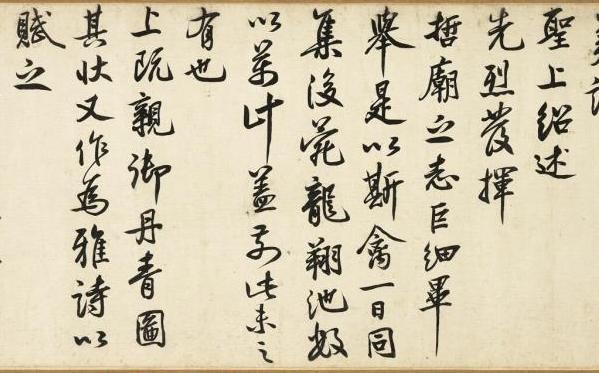 聖上紹述
先烈發揮
哲廟之志巨細畢
舉是以斯禽一日同
集後苑龍翔池數
以萬計蓋前此未之
有也
上既親御丹青圖
其狀又作為雅詩以
賦之